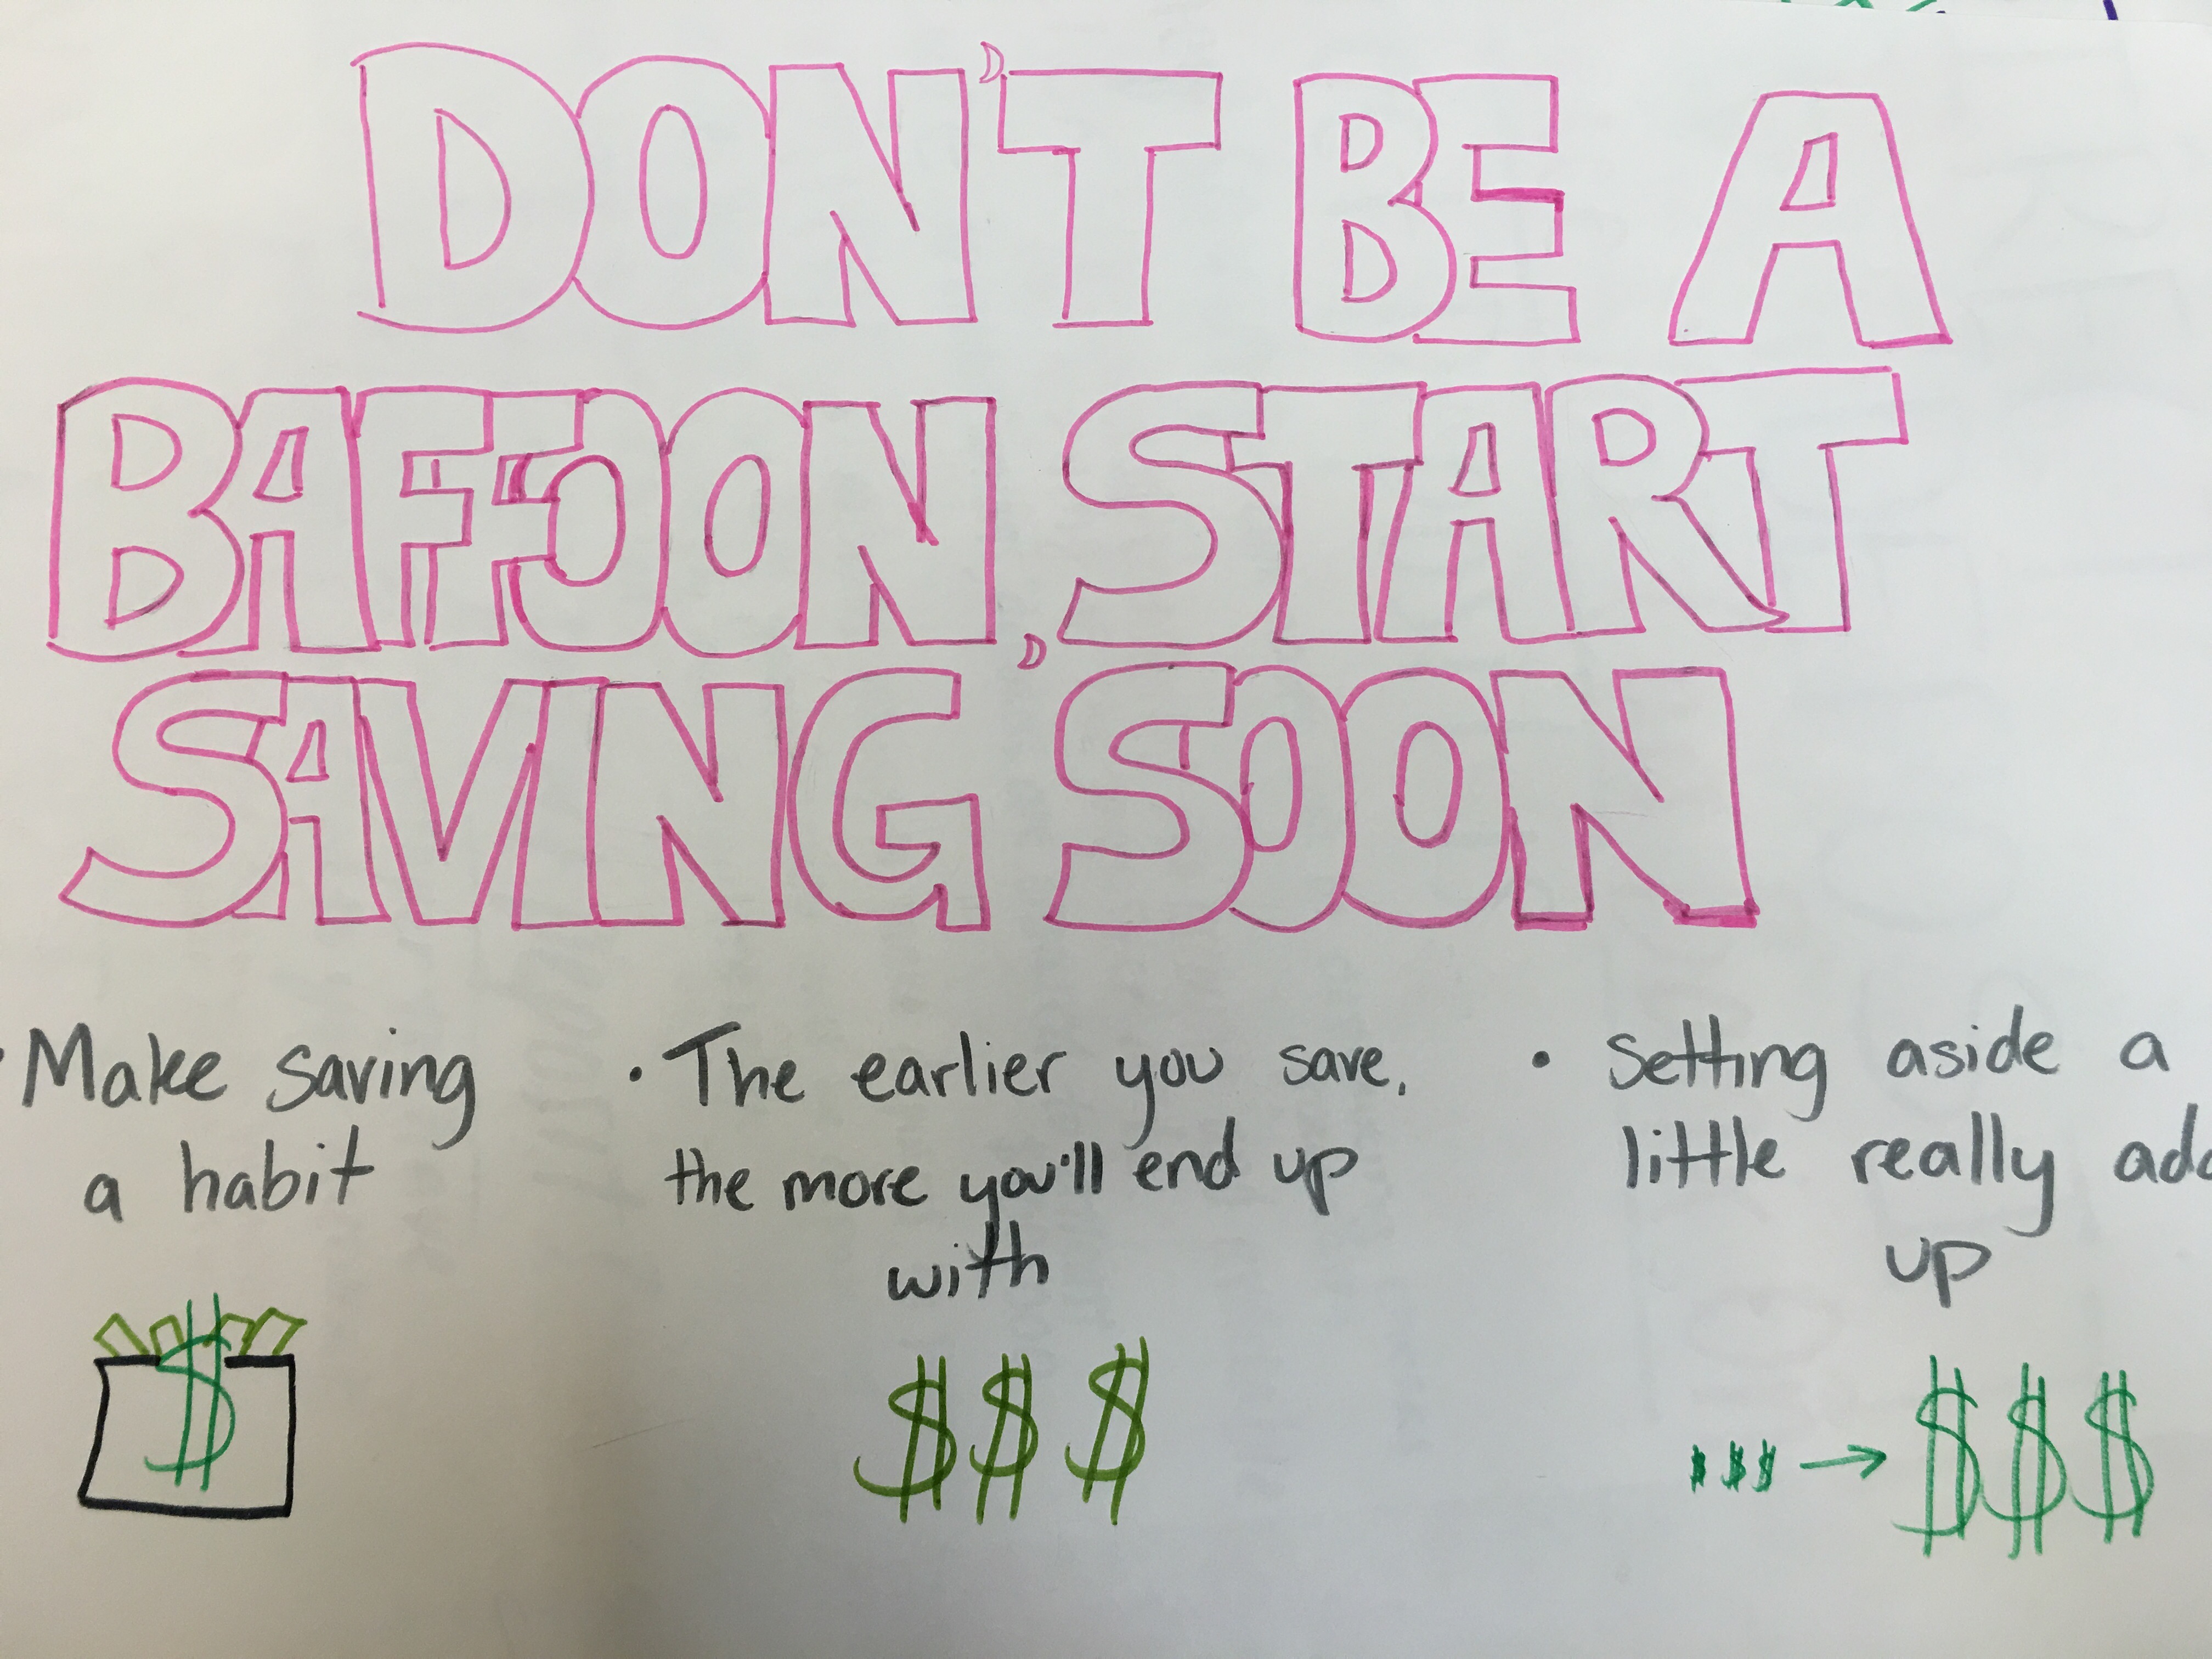 DON'T BE A
BAFFOON, START
SAVING SOON
• Make saving
a habit
$
• The earlier you save,
the more you'll end up
with
$$$
• Setting aside a
little really add
up
$$$ → $$$